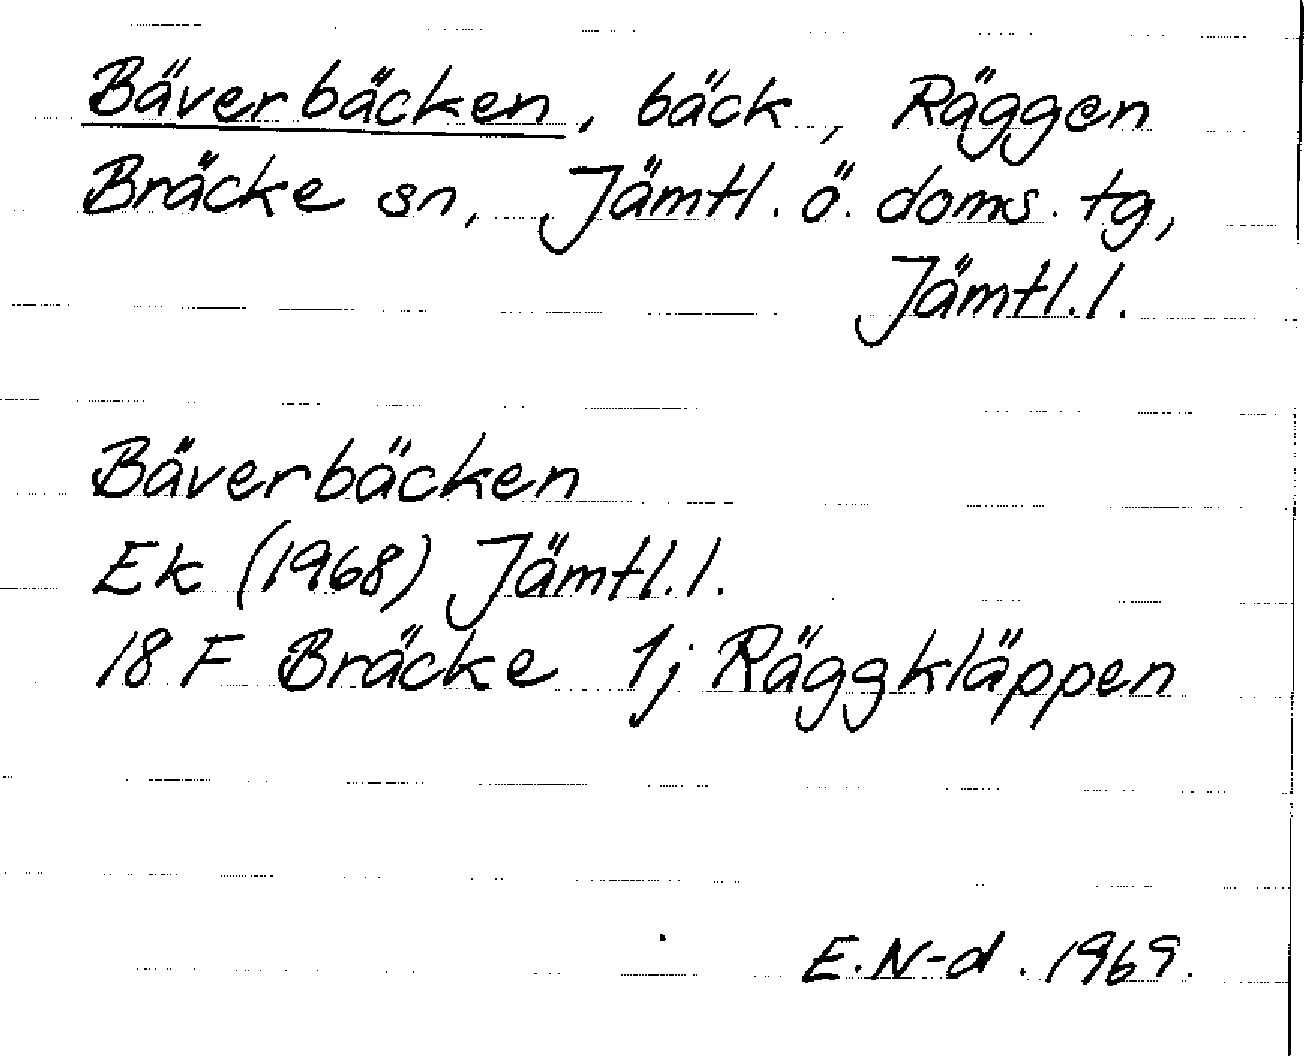 Bäverbäcken, bäck, Räggen
Bräcke sn, Jämtl. ö. doms. tg,
Jämtl. l.
Bäverbäcken
Ek (1968) Jämtl. l.
18 F Bräcke 1j Räggkläppen
E. N-d. 1969.